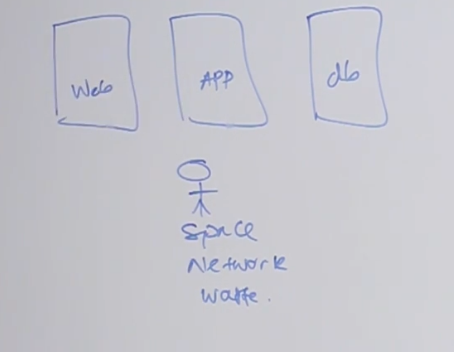 Web
APP
db
Space
Network